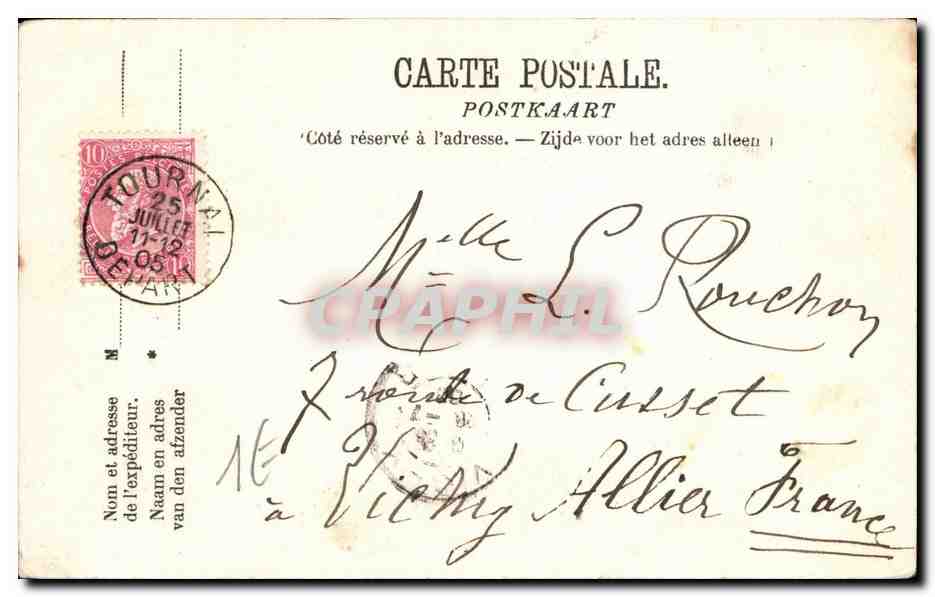 CARTE POSTALE.
POSTKAART
Côté réservé à l'adresse. — Zijde voor het adres alleen
10
TOURNAI
25
JUILLET
11-12
05
DEPART
Mlle L. Rouchon
7 route de Cusset
à Vichy Allier France
CPAPHIL
1E
M
*
Nom et adresse
de l'expéditeur.
Naam en adres
van den afzender